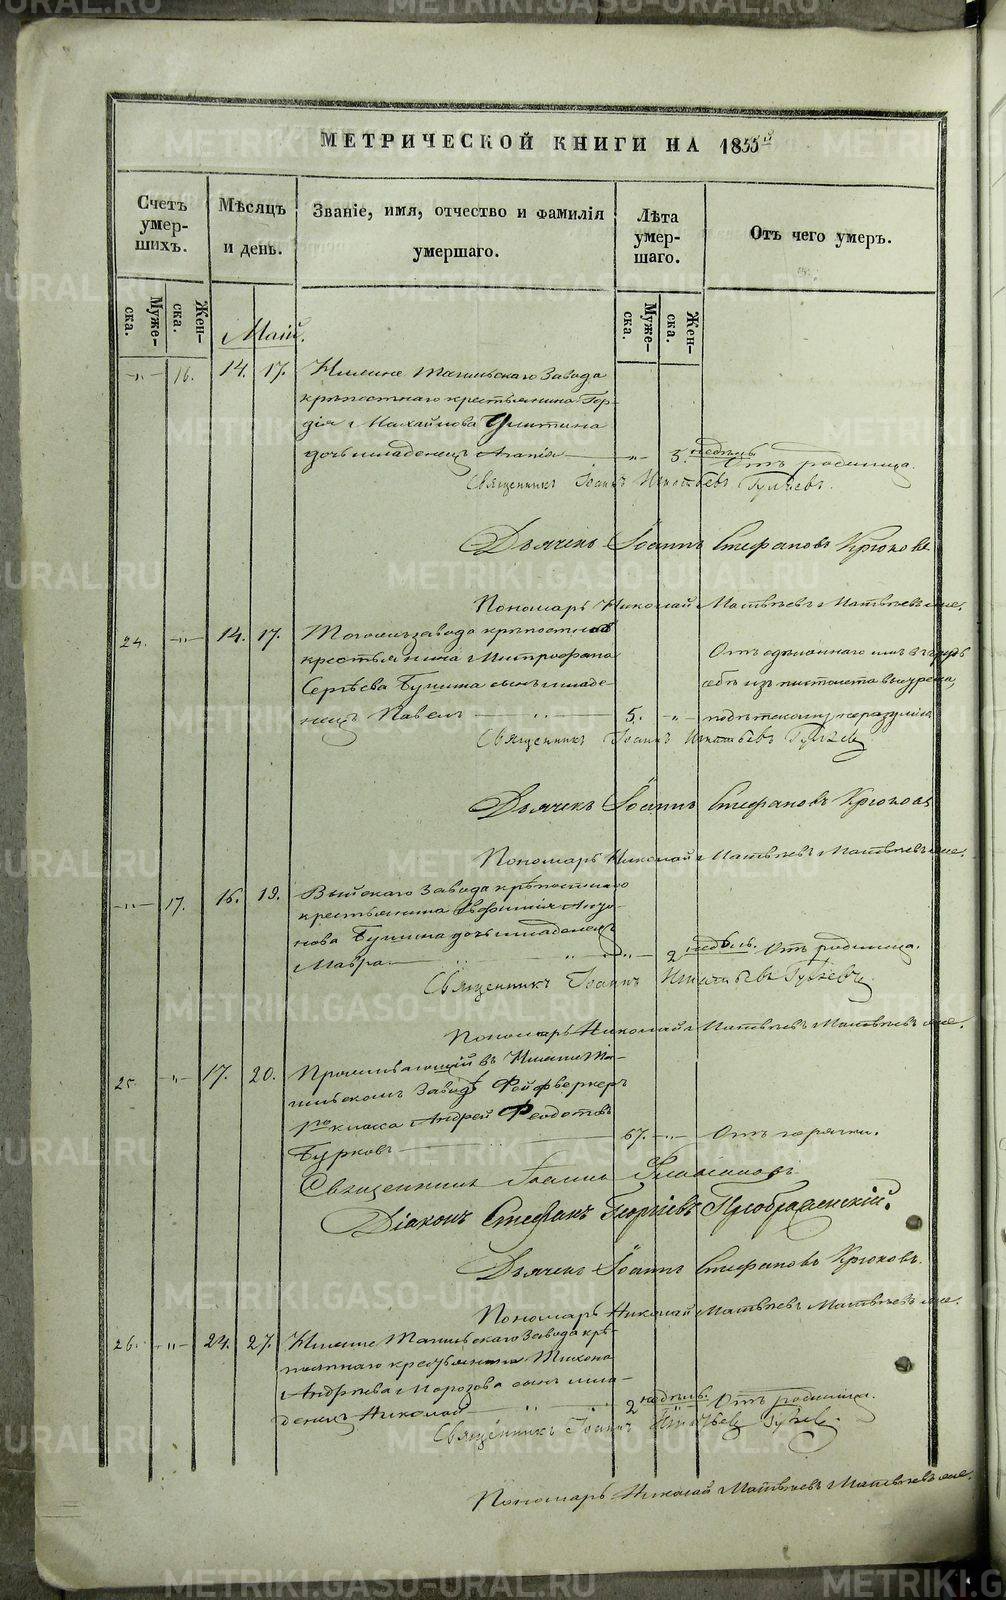 МЕТРИЧЕСКОЙ КНИГИ НА 1855
Счетъ умершихъ.
Мѣсяцъ и день.
Званіе, имя, отчество и фамилія умершаго.
Лѣта умершаго.
Отъ чего умеръ.
Мужеска.
Женска.
Мужеска.
Женска.
Май.
16. 14. 17. Нижне Тагильскаго завода
крѣпостнаго крестьянина Гор-
дія Михайлова
дочь младенецъ Агапія 3. недѣль Отъ родимца.
Священникъ Іоаннъ Игнатьевъ
Дьячекъ Іоаннъ Стефановъ Крюковъ
Пономарь Николай Матвѣевъ Матвѣевъ
24. 14. 17. Тогожъ завода крѣпостнаго
крестьянина Митрофана
Сергѣева Бунина сынъ младе-
нецъ Павелъ 5.
Священникъ Іоаннъ Игнатьевъ
Дьячекъ Іоаннъ Стефановъ Крюковъ
Пономарь Николай Матвѣевъ Матвѣевъ
17. 16. 19. Выйскаго завода крѣпостнаго
крестьянина Евфимія
Бунина дочь младенецъ
Мавра 2 недѣль. Отъ родимца.
Священникъ Іоаннъ Игнатьевъ
Пономарь Николай Матвѣевъ Матвѣевъ
25. 17. 20. Проживающій въ Нижне Та-
гильскомъ заводѣ Фейфверкеръ
1го класса Андрей Феодотовъ
Бурковъ 67. Отъ горячки.
Священникъ Іоаннъ Флавіановъ
Діаконъ Стефанъ Георгіевъ Преображенскій.
Дьячекъ Іоаннъ Стефановъ Крюковъ.
Пономарь Николай Матвѣевъ Матвѣевъ
26. 24. 27. Нижне Тагильскаго завода крѣ-
постнаго крестьянина Тихона
Андрѣева Морозова сынъ мла-
денецъ Николай 2 недѣль. Отъ родимца.
Священникъ Іоаннъ Игнатьевъ
Пономарь Николай Матвѣевъ Матвѣевъ
METRIKI.GASO-URAL.RU